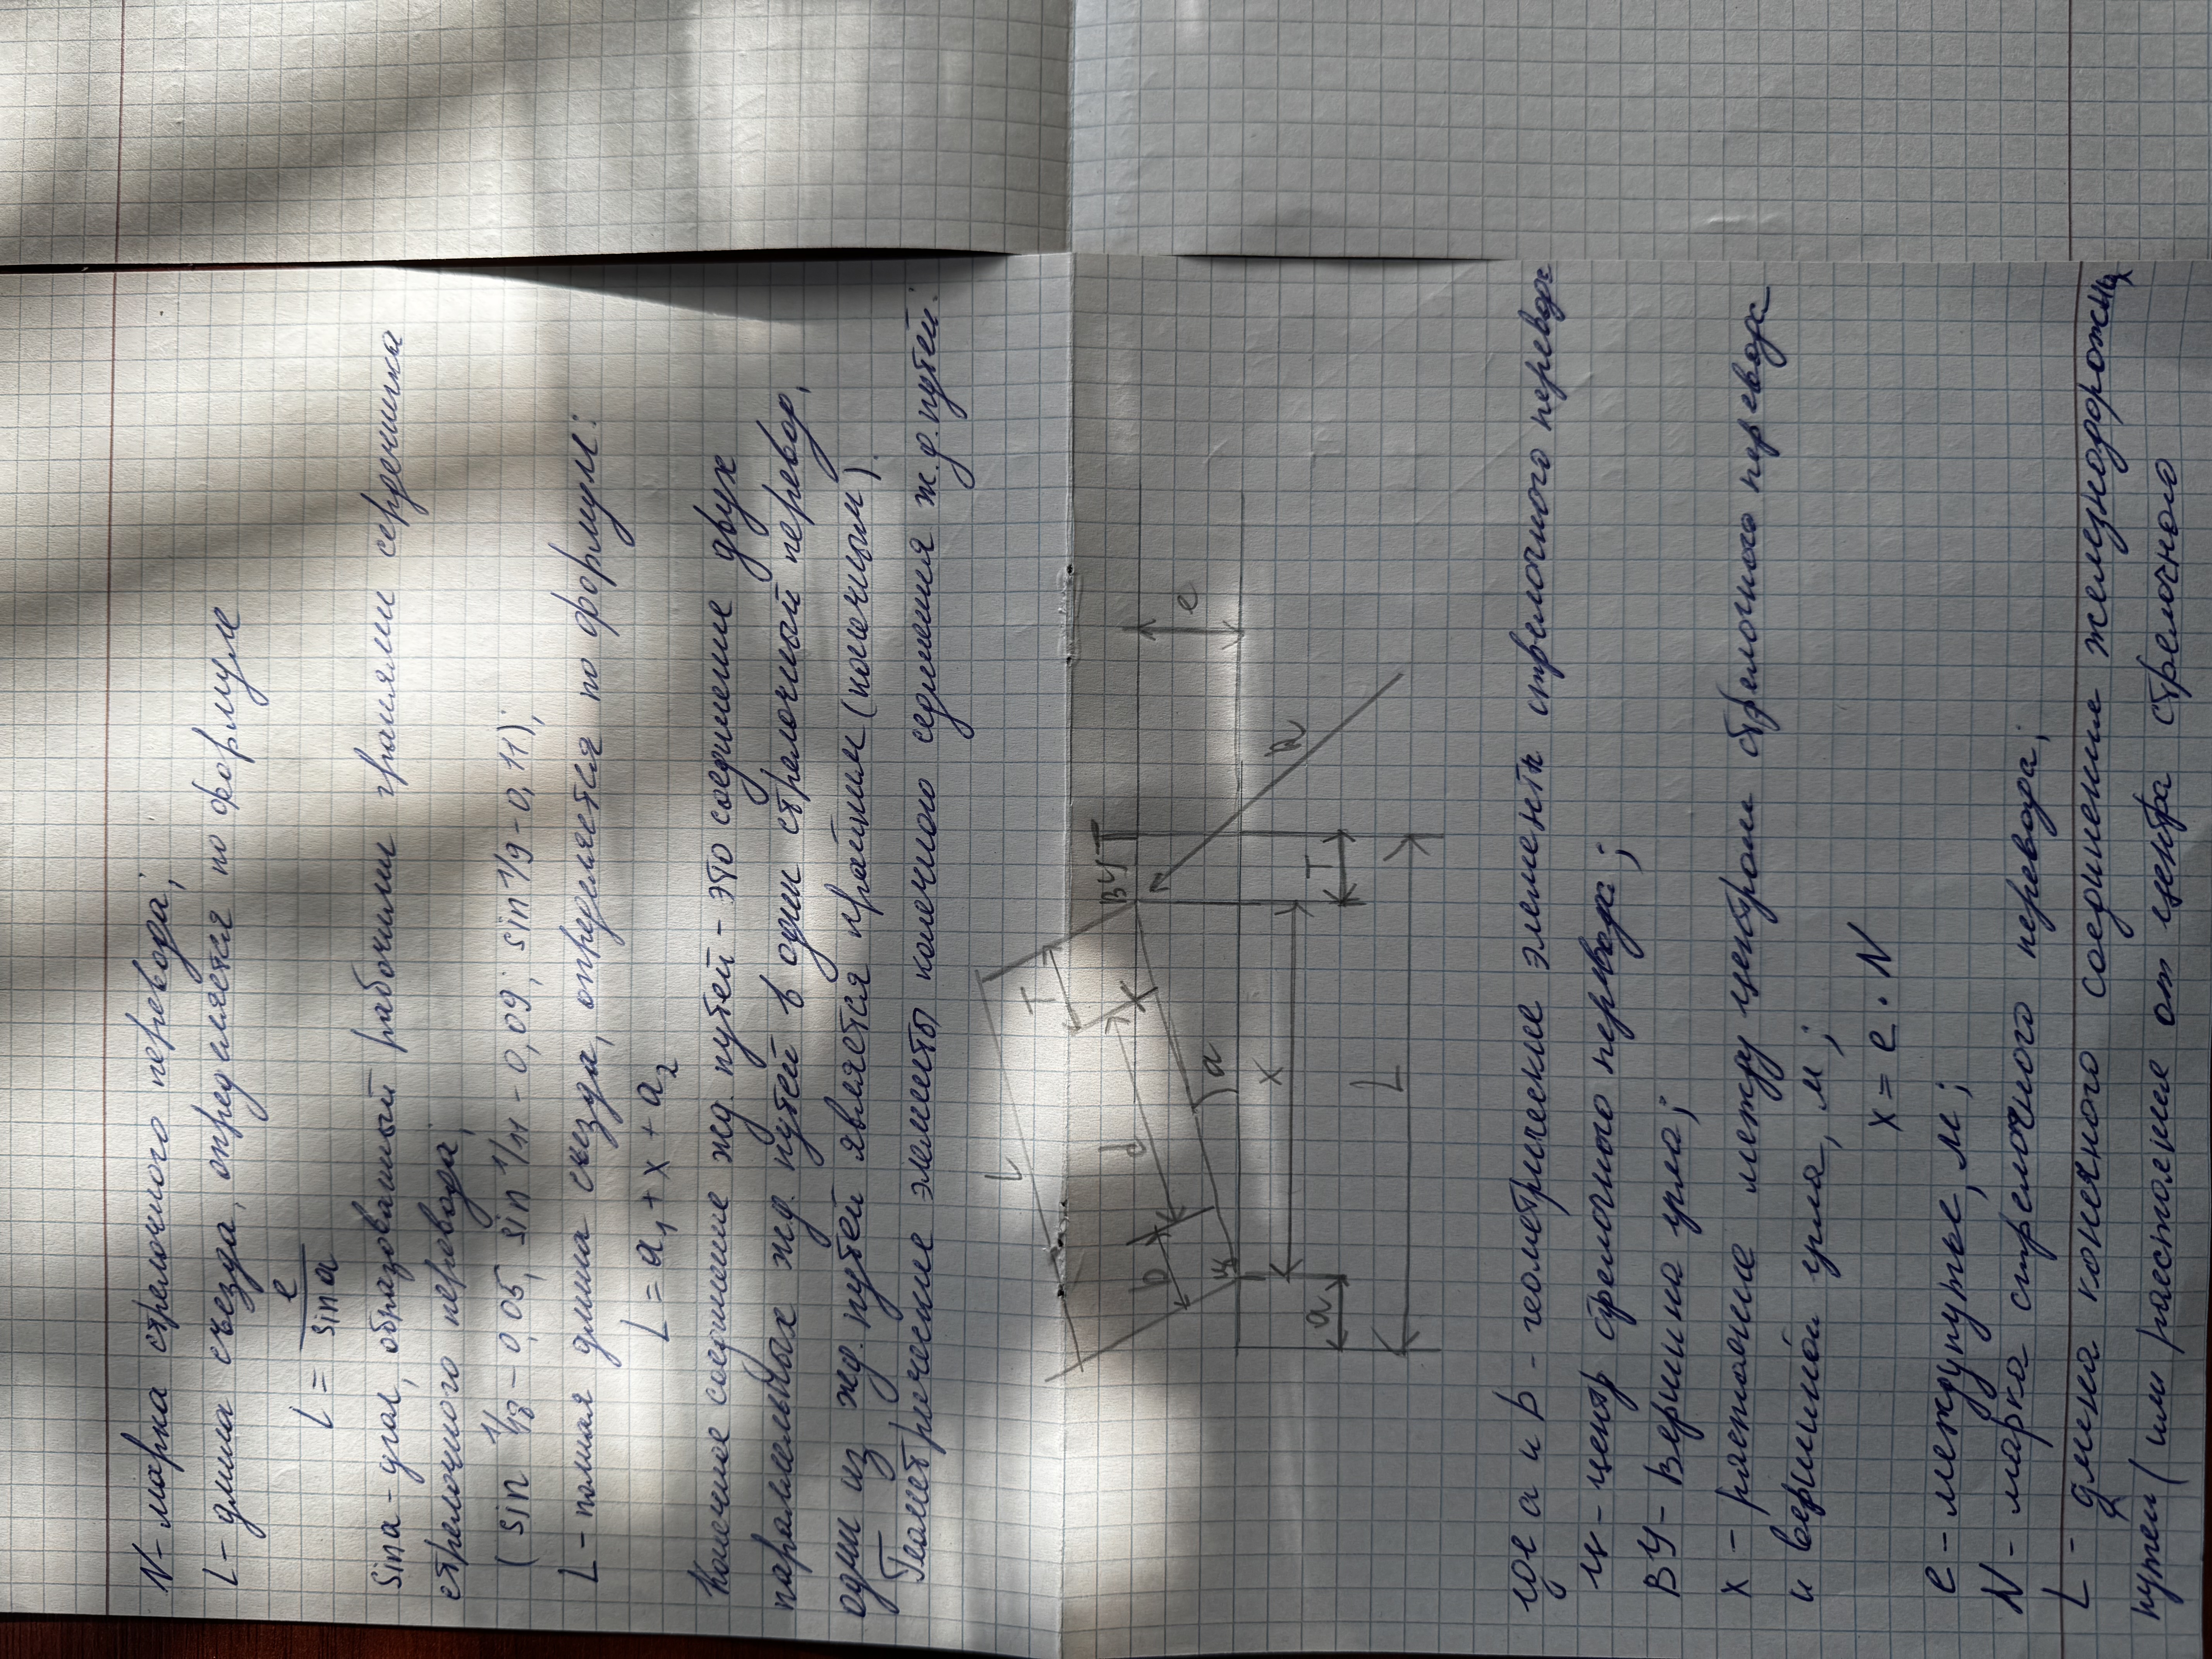 N - марка стрелочного перевода;
L - длина съезда, определяется по формуле
L = e / sin a
sin a - угол, образованный рабочими гранями сердечника
стрелочного перевода;
(sin 1/18 - 0,05, sin 1/11 - 0,09; sin 1/9 - 0,11);
L - полная длина съезда, определяется по формуле:
L = a₁ + x + a₂
Конечное соединение жд. путей - это соединение двух
параллельных жд. путей в один стрелочный перевод,
один из жд. путей является крайним (конечным).
Геометрические элементы конечного седиения ж.д. путей:
L
T
ВУ
T
d
K
b
ц
a
e
R
a
x
T
L
где a и b - геометрические элементы стрелочного перевода
ц - центр стрелочного перевода;
ВУ - Вершина угла;
x - расстояние между центром стрелочного перевода
и вершиной угла, м;
x = e · N
e - междупутье, м;
N - марка стрелочного перевода;
L - длина конечного соединение железнодорожных
путей (или расстояние от центра стрелочного